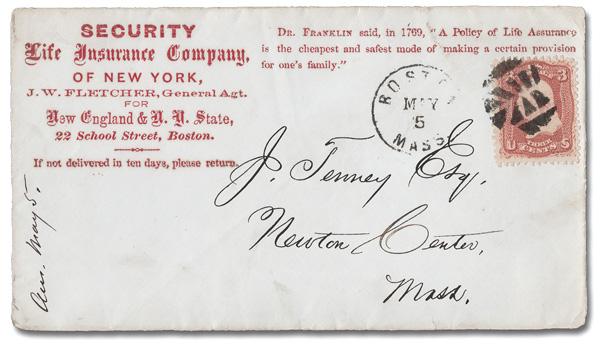 SECURITY
Life Insurance Company,
OF NEW YORK,
J. W. FLETCHER, General Agt.
FOR
New England & N. Y. State,
22 School Street, Boston.
If not delivered in ten days, please return.
DR. FRANKLIN said, in 1769, "A Policy of Life Assurance
is the cheapest and safest mode of making a certain provision
for one's family."
BOSTON
MAY
5
MASS
3
U S
THREE
CENTS
J. Tenney Esq.
Newton Center,
Mass.
Ans. May 5.